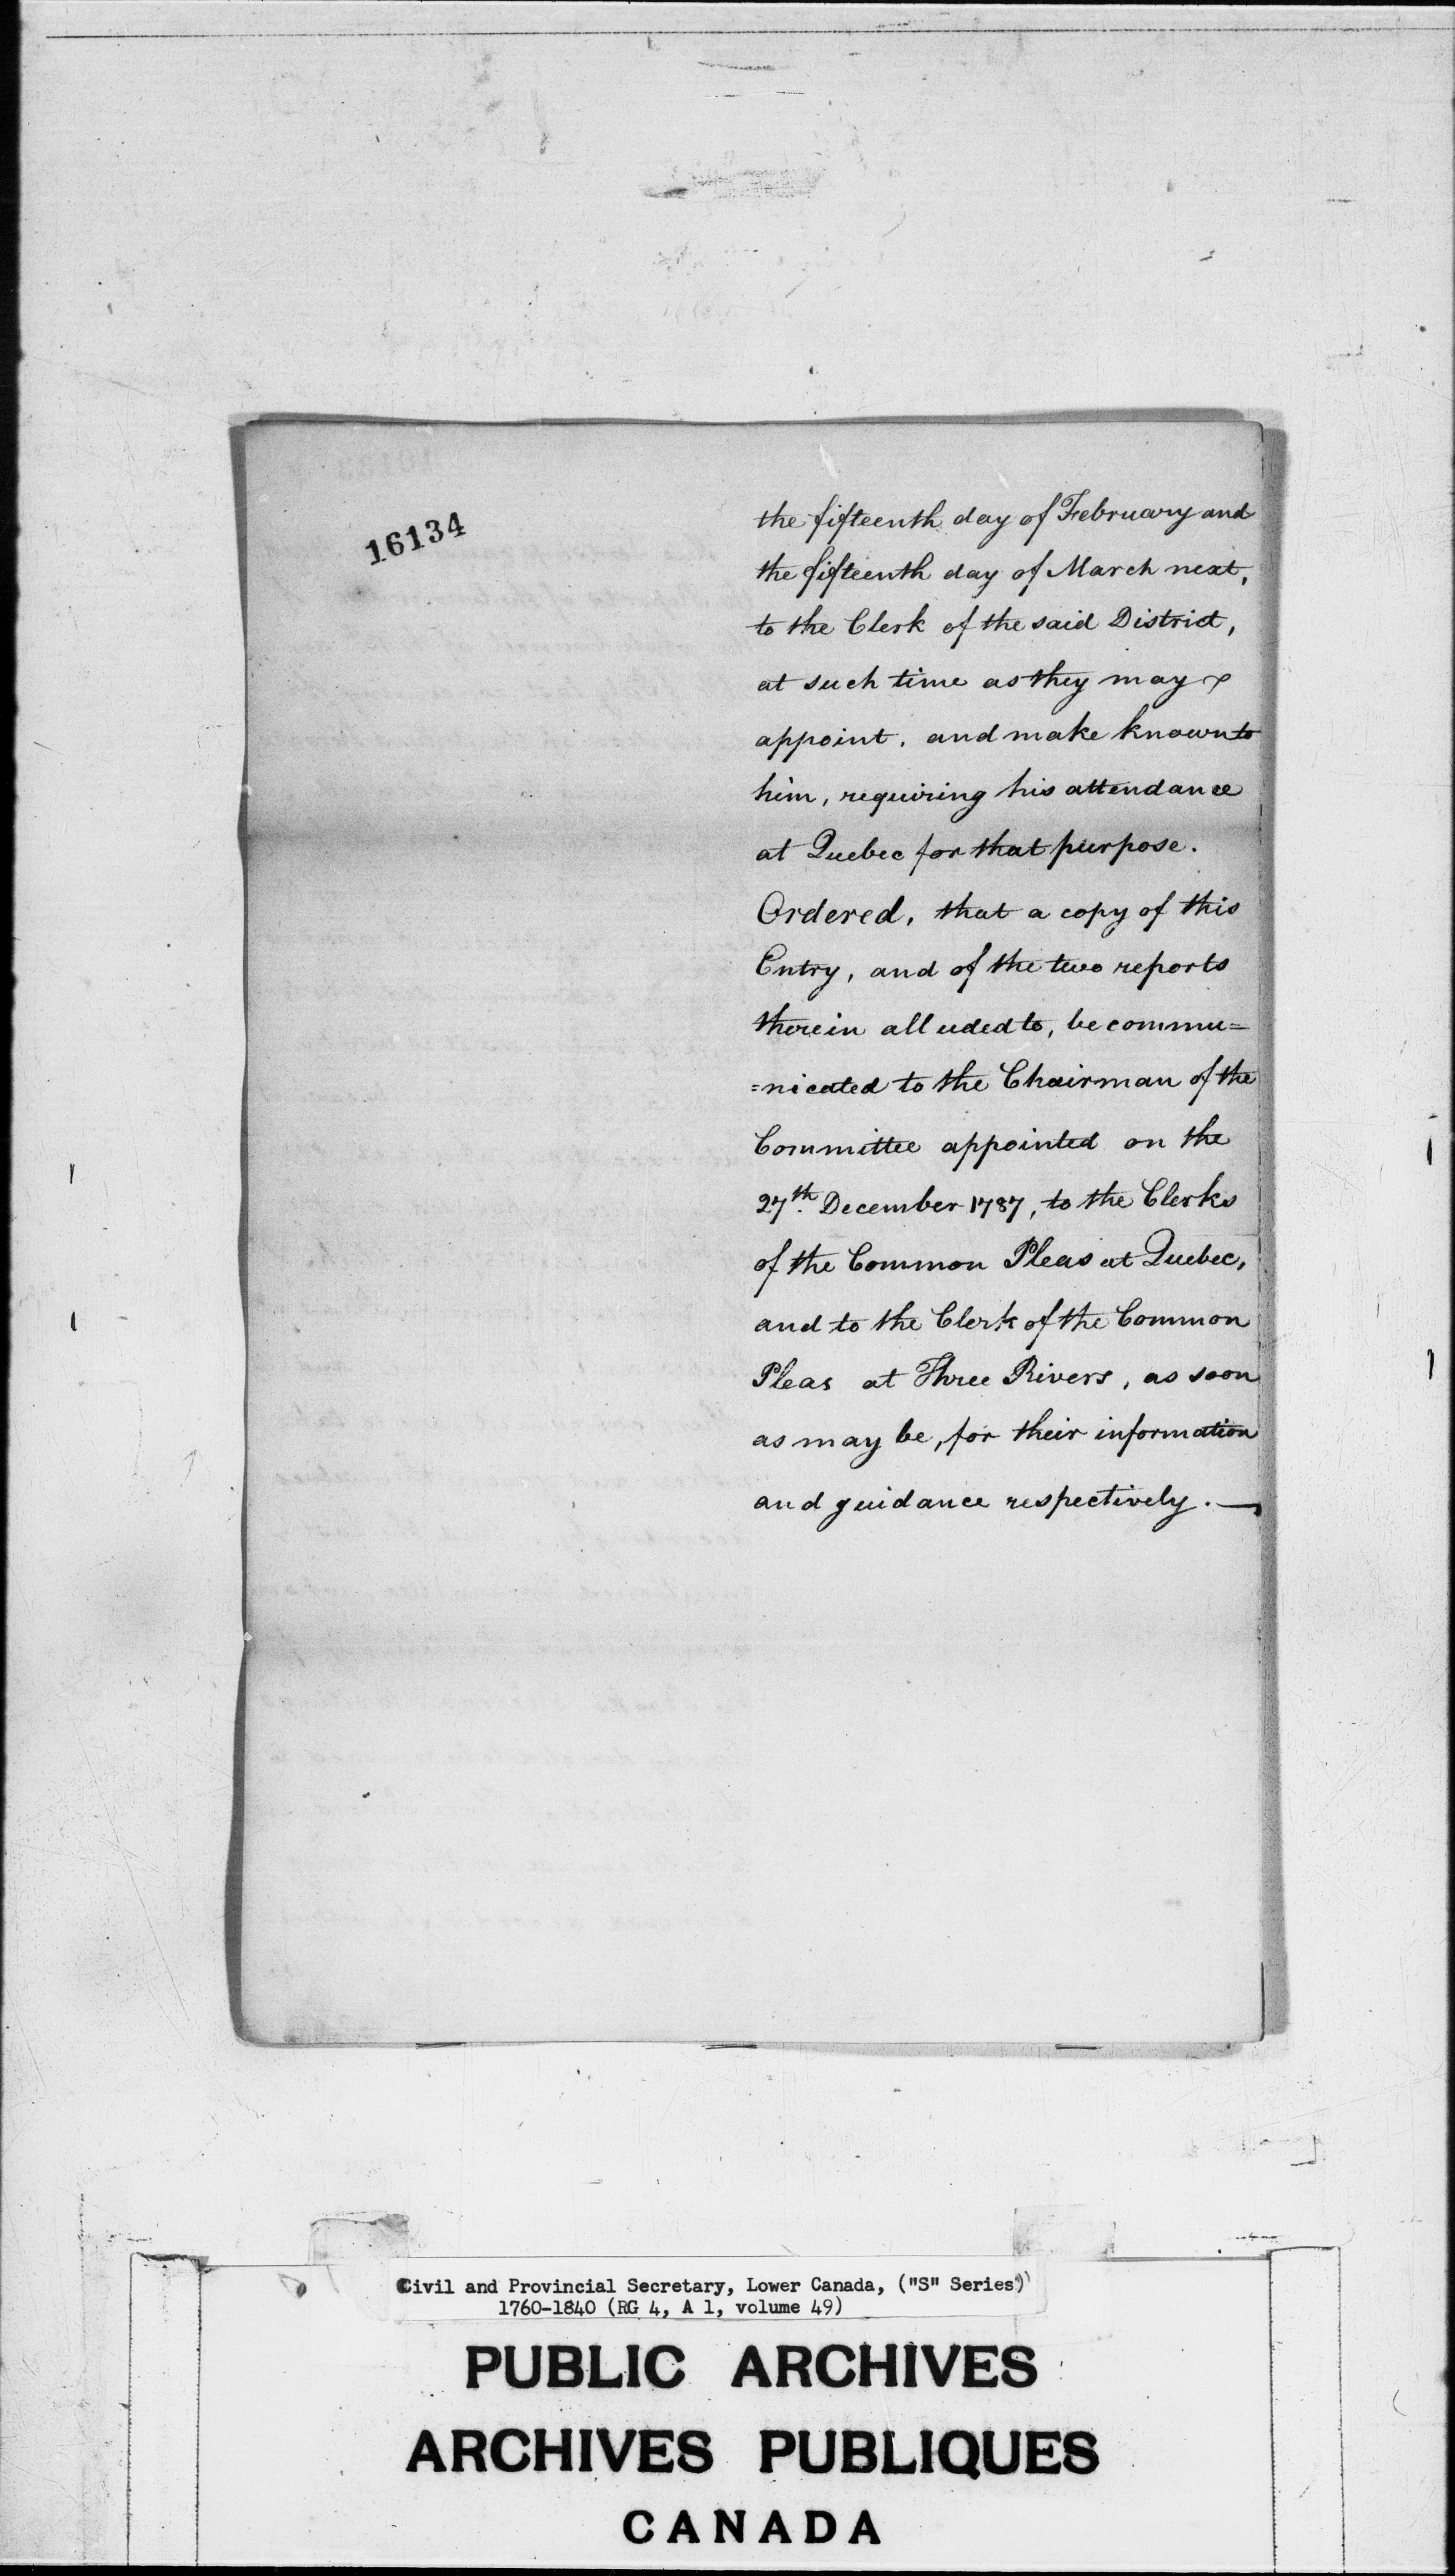 16134
the fifteenth day of February and
the fifteenth day of March next,
to the Clerk of the said District,
at such time as they may
appoint, and make known to
him, requiring his attendance
at Quebec for that purpose.
Ordered, that a copy of this
Entry, and of the two reports
therein alluded to, be commu=
=nicated to the Chairman of the
Committee appointed on the
27th. December 1787, to the Clerks
of the Common Pleas at Quebec,
and to the Clerk of the Common
Pleas at Three Rivers, as soon
as may be, for their information
and guidance respectively. —
Civil and Provincial Secretary, Lower Canada, ("S" Series)
1760-1840 (RG 4, A 1, volume 49)
PUBLIC ARCHIVES
ARCHIVES PUBLIQUES
CANADA